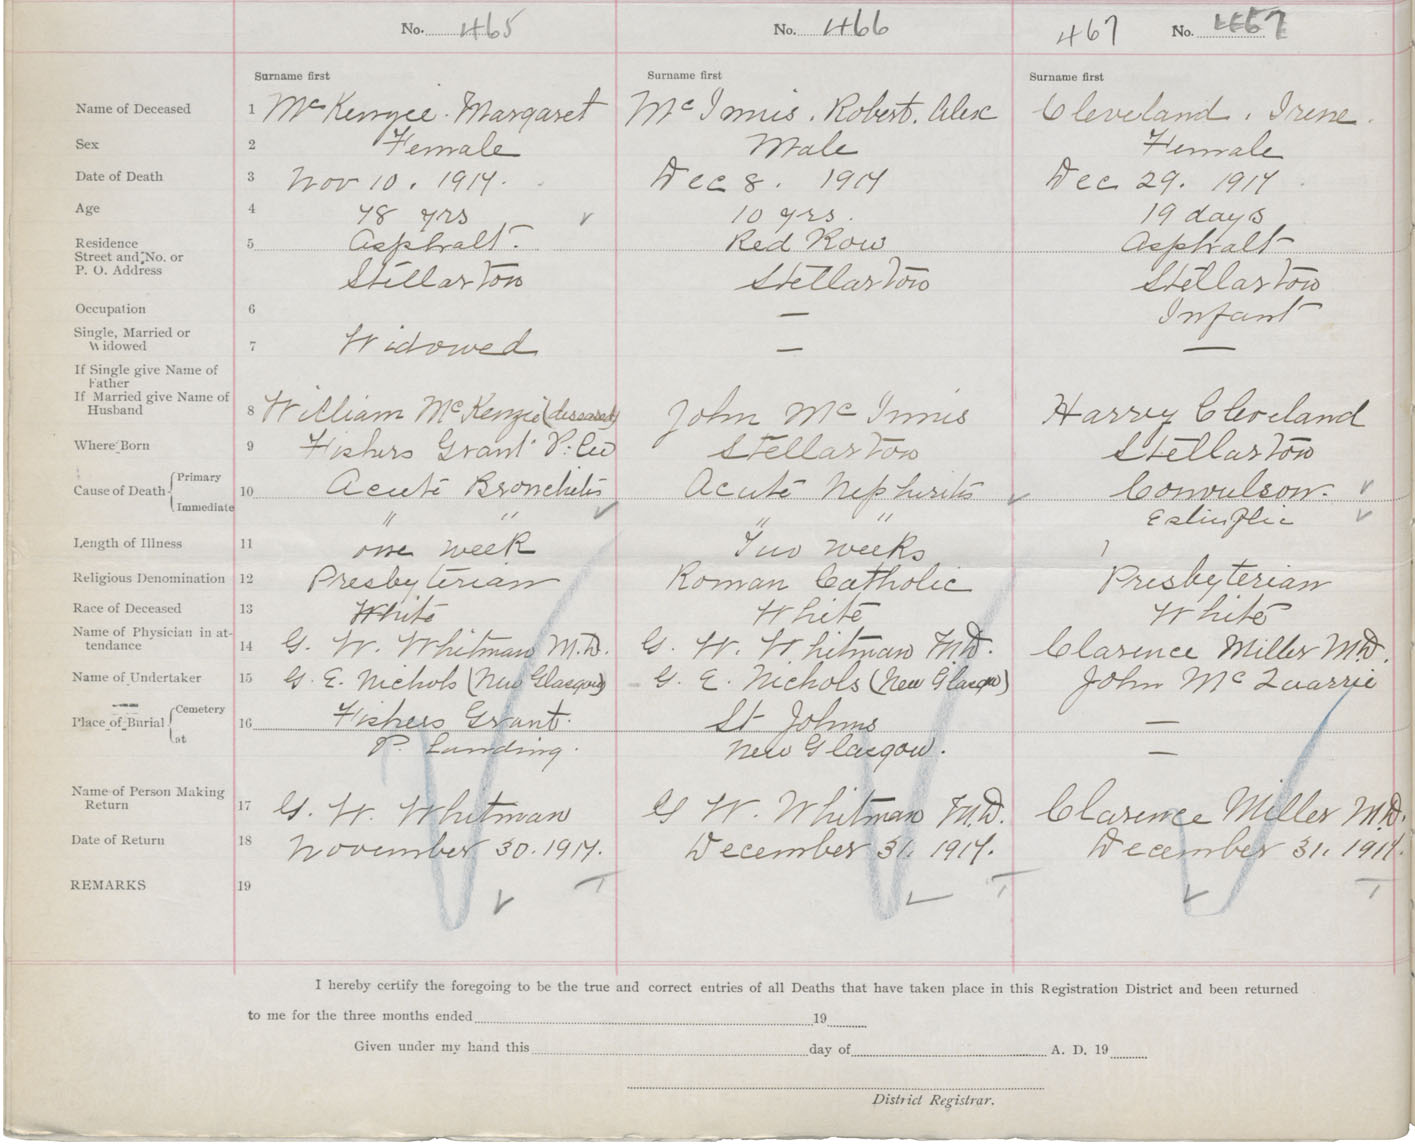 No. 465 No. 466 467 No. 467
Surname first Surname first Surname first
Name of Deceased 1 McKenzie. Margaret McInnis. Robert. Alex Cleveland. Irene.
Sex 2 Female Male Female
Date of Death 3 Nov 10. 1917. Dec 8. 1917 Dec 29. 1917
Age 4 78 yrs 10 yrs. 19 days
Residence 5 Asphalt. Red Row Asphalt
Street and No. or
P. O. Address Stellarton Stellarton Stellarton
Occupation 6 — Infant
Single, Married or
Widowed 7 Widowed — —
If Single give Name of
Father
If Married give Name of
Husband 8 William McKenzie (deceased) John McInnis Harry Cleveland
Where Born 9 Fishers Grant P. Co Stellarton Stellarton
Cause of Death Primary 10 Acute Bronchitis Acute Nephritis Convulson.
Immediate " " " "
Length of Illness 11 one week Two weeks
Religious Denomination 12 Presbyterian Roman Catholic Presbyterian
Race of Deceased 13 White White White
Name of Physician in at-
tendance 14 G. W. Whitman M.D. G. W. Whitman M.D. Clarence Miller M.D.
Name of Undertaker 15 G. E. Nichols (New Glasgow) G. E. Nichols (New Glasgow) John McQuarrie
Place of Burial Cemetery 16 Fishers Grant. St Johns —
at P. Landing. New Glasgow. —
Name of Person Making
Return 17 G. W. Whitman G W. Whitman M.D. Clarence Miller M.D.
Date of Return 18 November 30. 1917. December 31. 1917. December 31. 1917.
REMARKS 19
I hereby certify the foregoing to be the true and correct entries of all Deaths that have taken place in this Registration District and been returned
to me for the three months ended 19
Given under my hand this day of A. D. 19
District Registrar.